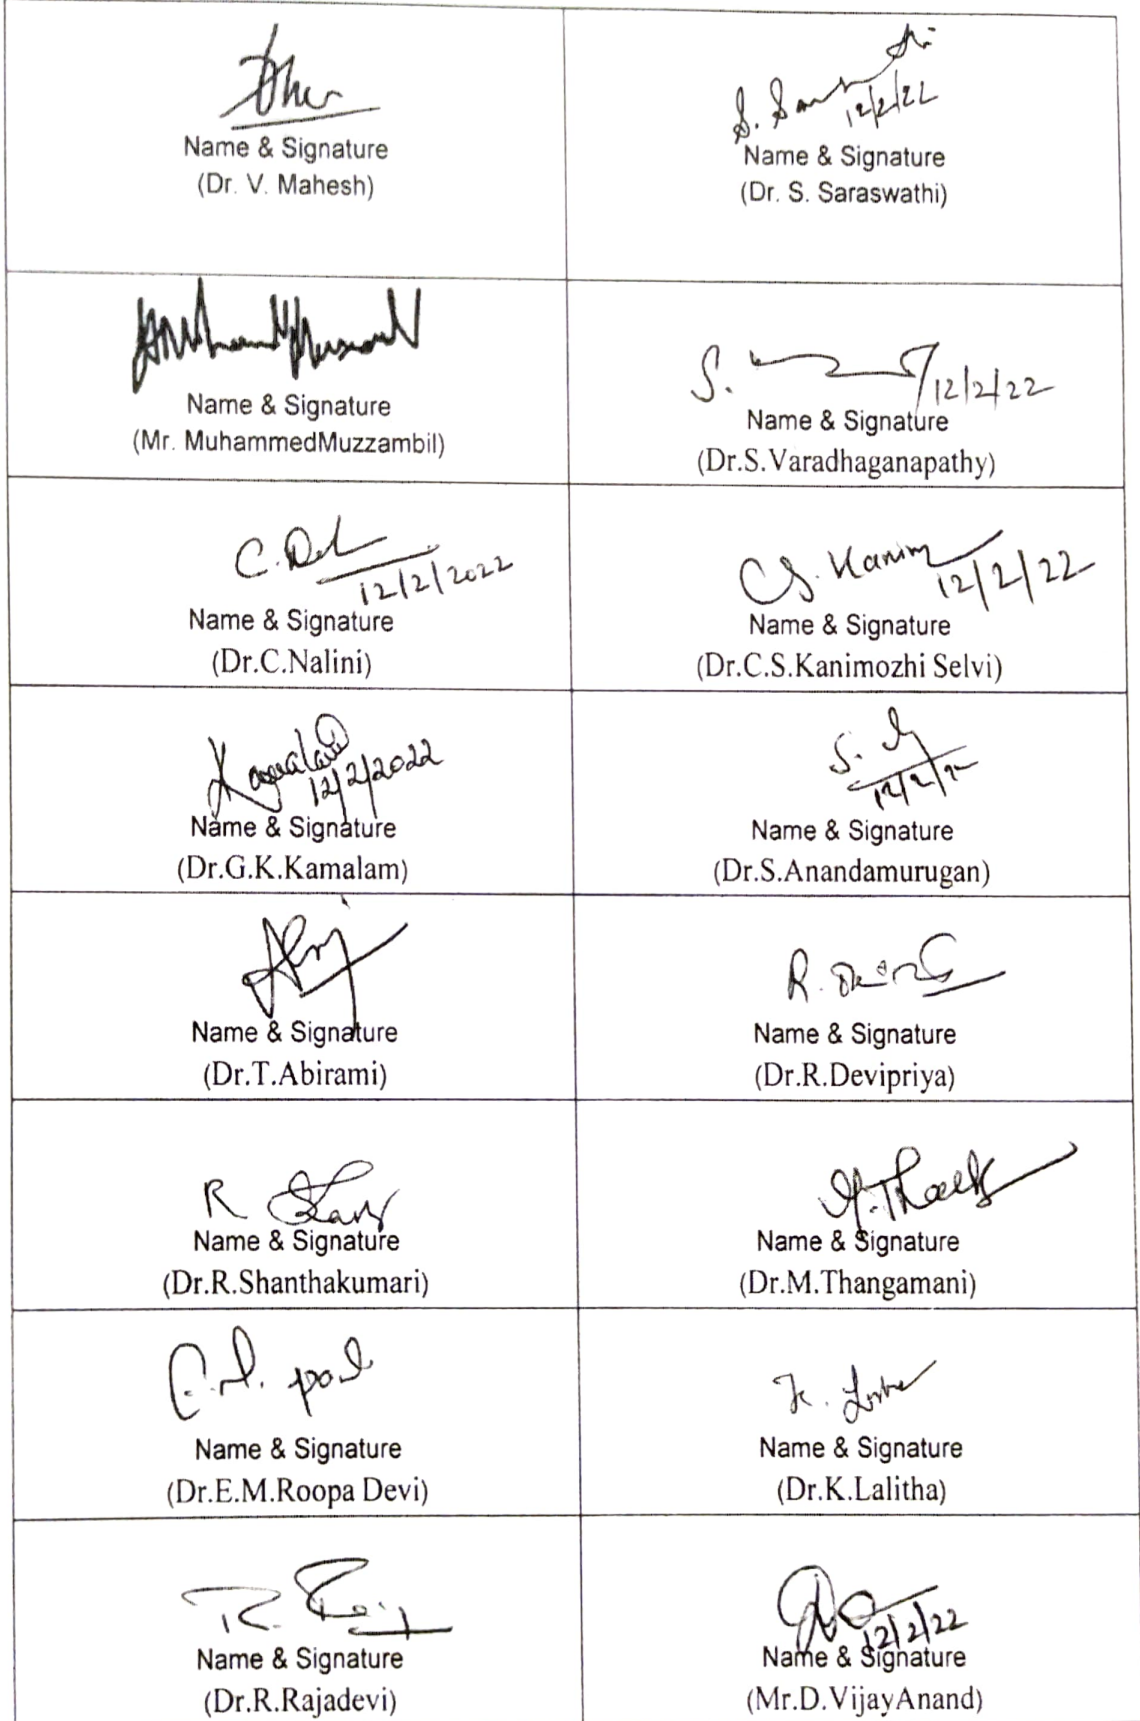 S.
12/2/22
Name & Signature
(Dr. V. Mahesh)
Name & Signature
(Dr. S. Saraswathi)
Name & Signature
(Mr. MuhammedMuzzambil)
S.
12/2/22
Name & Signature
(Dr.S.Varadhaganapathy)
C.
12/2/2022
Name & Signature
(Dr.C.Nalini)
CS.
12/2/22
Name & Signature
(Dr.C.S.Kanimozhi Selvi)
12/2/2022
Name & Signature
(Dr.G.K.Kamalam)
S.
12/2/22
Name & Signature
(Dr.S.Anandamurugan)
Name & Signature
(Dr.T.Abirami)
R.
Name & Signature
(Dr.R.Devipriya)
R
Name & Signature
(Dr.R.Shanthakumari)
Name & Signature
(Dr.M.Thangamani)
Name & Signature
(Dr.E.M.Roopa Devi)
K.
Name & Signature
(Dr.K.Lalitha)
R.
Name & Signature
(Dr.R.Rajadevi)
12/2/22
Name & Signature
(Mr.D.VijayAnand)